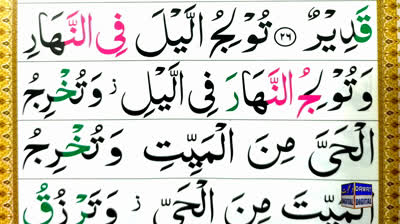 قَدِیْرٌ ﴿۲۶﴾ تُوْلِجُ الَّیْلَ فِی النَّهَارِ
وَ تُوْلِجُ النَّهَارَ فِی الَّیْلِ ؗ وَ تُخْرِجُ
الْحَیَّ مِنَ الْمَیِّتِ وَ تُخْرِجُ
الْمَیِّتَ مِنَ الْحَیِّ ؗ وَ تَرْزُقُ